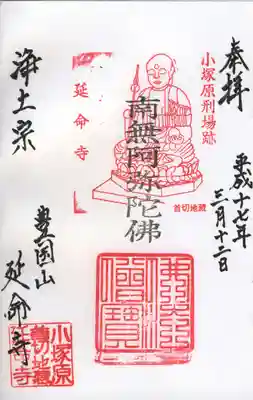 奉拝
平成十七年
三月十二日
小塚原刑場跡
首切地蔵
南無阿弥陀佛
延命寺
佛法僧寳
浄土宗
豊国山
延命寺
小塚原
首切地蔵
延命寺